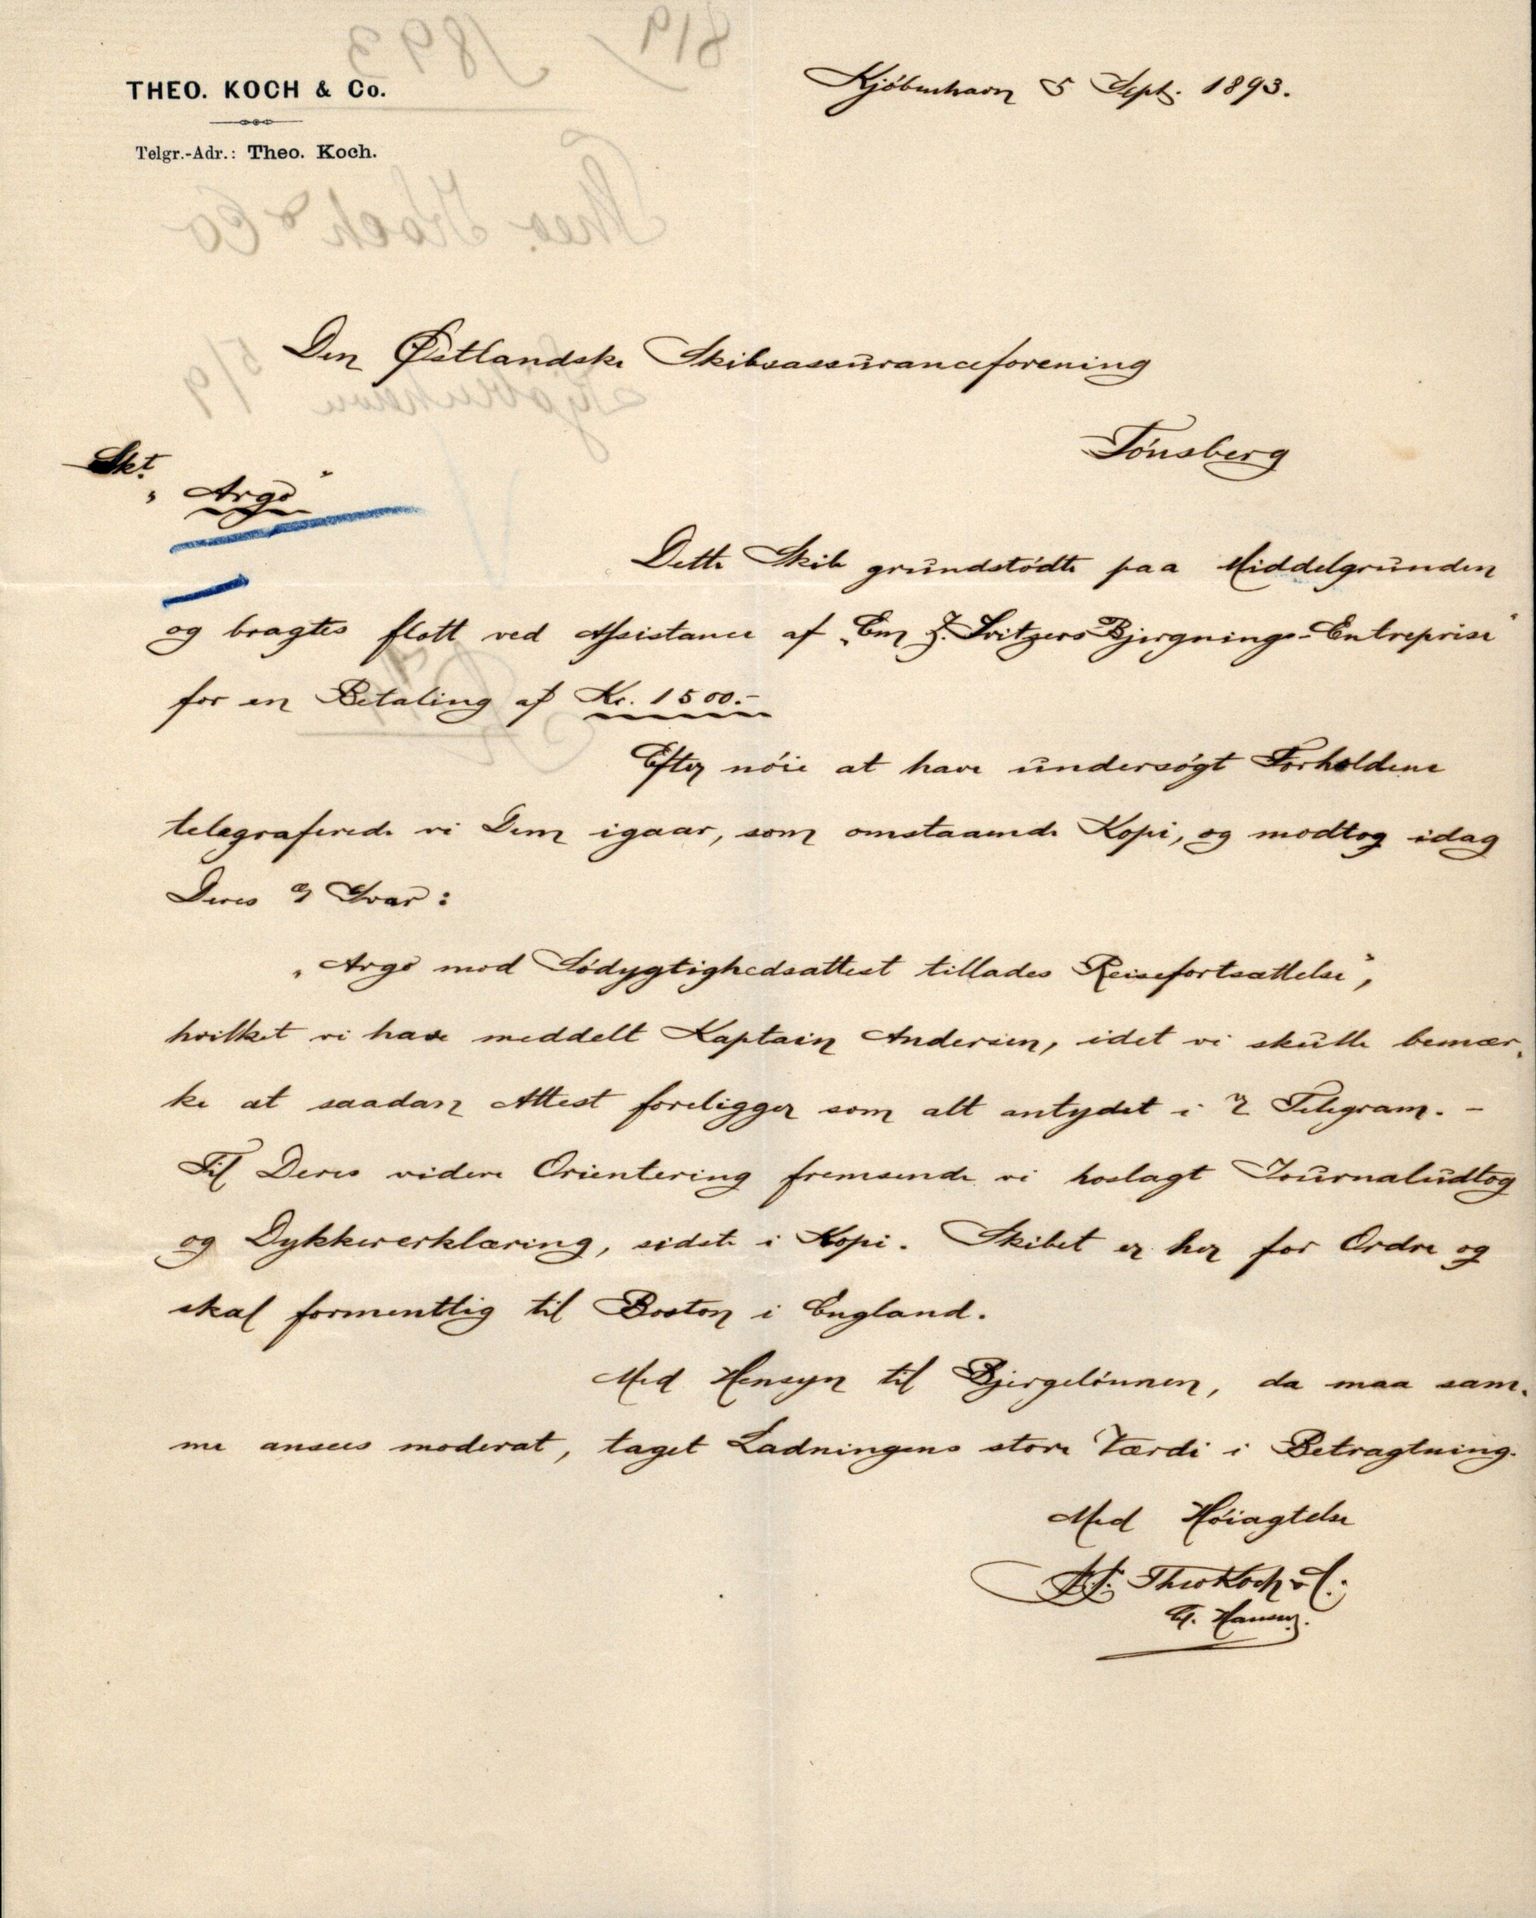 THEO. KOCH & Co.
Telgr.-Adr.: Theo. Koch.
Kjöbenhavn 5 Sept. 1893.
Den Østlandske Skibsassuranceforening
Tönsberg
Skt.
"Argo"
Dette Skib grundstödte paa Middelgrunden
og bragtes flott ved Assistance af "Em Z. Svitzers Bjergnings-Entreprise"
for en Betaling af Kr. 1500.-
Efter nöie at have undersögt Forholdene
telegraferede vi Dem igaar, som omstaaende Kopi, og modtog idag
Deres Svar:
"Argo mod Södygtighedsattest tillades Reisefortsættelse",
hvilket vi have meddelt Kaptain Andersen, idet vi skulle bemær-
ke at saadan Attest foreligger som alt antydet i Telegram. -
Til Deres videre Orientering fremsende vi hoslagt Journaludtog
og Dykkererklæring, sidste i Kopi. Skibet er her for Ordre og
skal formentlig til Boston i England.
Med Hensyn til Bjergelönnen, da maa sam-
me ansees moderat, taget Ladningens store Værdi i Betragtning.
Med Höiagtelse
Theo Koch & C.
Hansen.
819
1893
Theo. Koch & Co
Kjøbenhavn 5/9